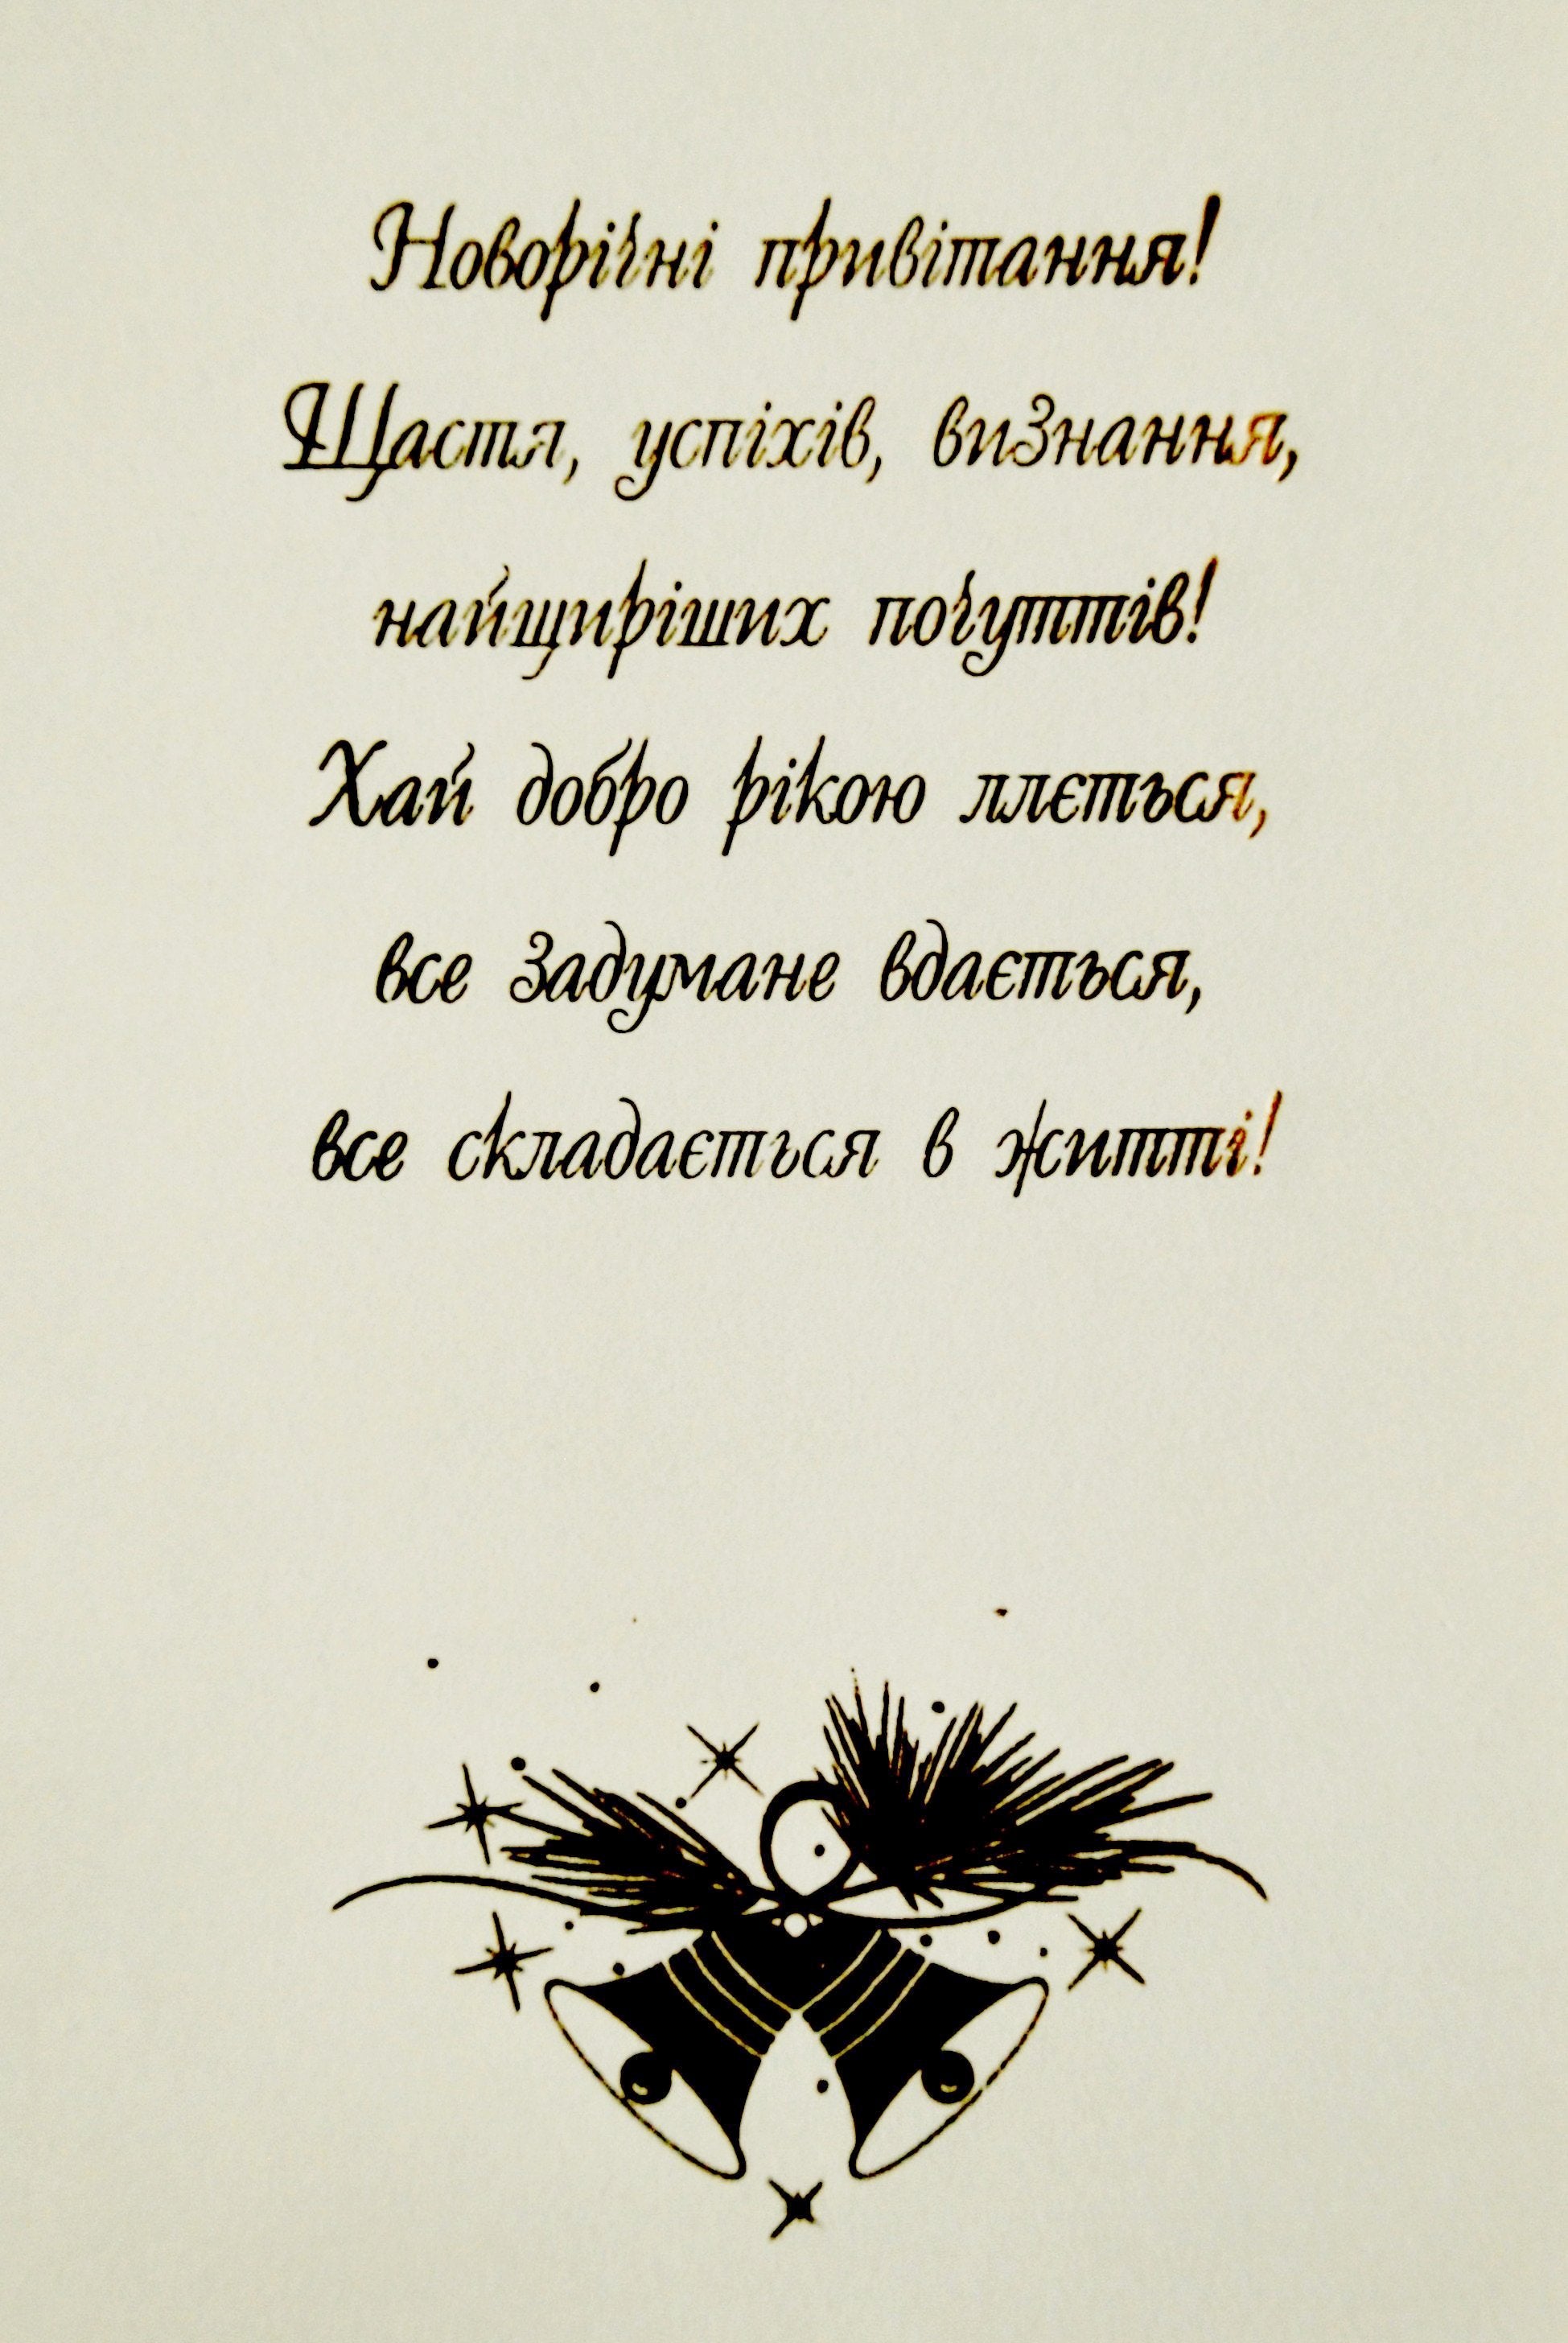 Новорічні привітання!
Щастя, успіхів, визнання,
найщиріших почуттів!
Хай добро рікою ллється,
все задумане вдається,
все складається в житті!